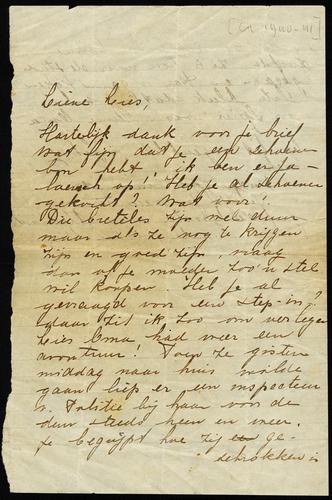 Lieve Lies,
Hartelijk dank voor je brief
Wat fijn dat je een schoenen
bon hebt ik ben er ja-
loersch op! Heb je al schoenen
gekocht? Wat voor?
Die bretelles zijn wel duur
maar als ze nog te krijgen
zijn en goed zijn, vraag
dan of je moeder zoo'n stel
wil koopen. Heb je al
gevraagd voor een step-in?
daar zit ik zoo om verlegen
Lies Oma had weer een
avontuur! Toen ze gisteren
middag naar huis wilde
gaan liep er een inspecteur
v. Politie bij haar voor de
deur steeds heen en weer.
Je begrijpt hoe zij ge-
schrokken is